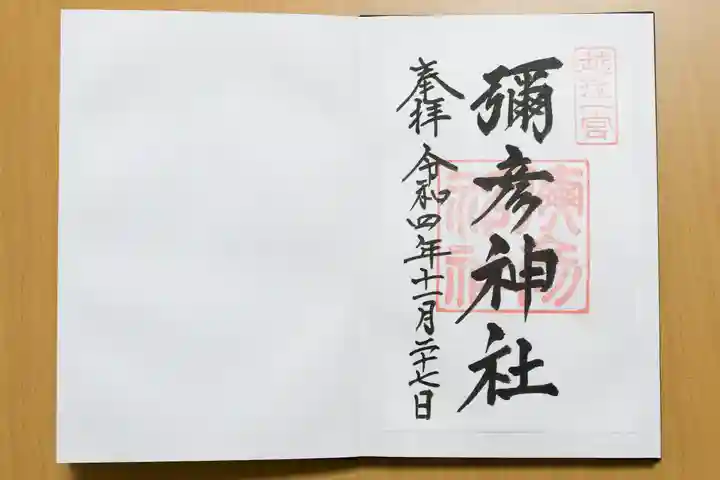 越後一宮
彌彦神社
奉拝 令和四年十一月二十七日